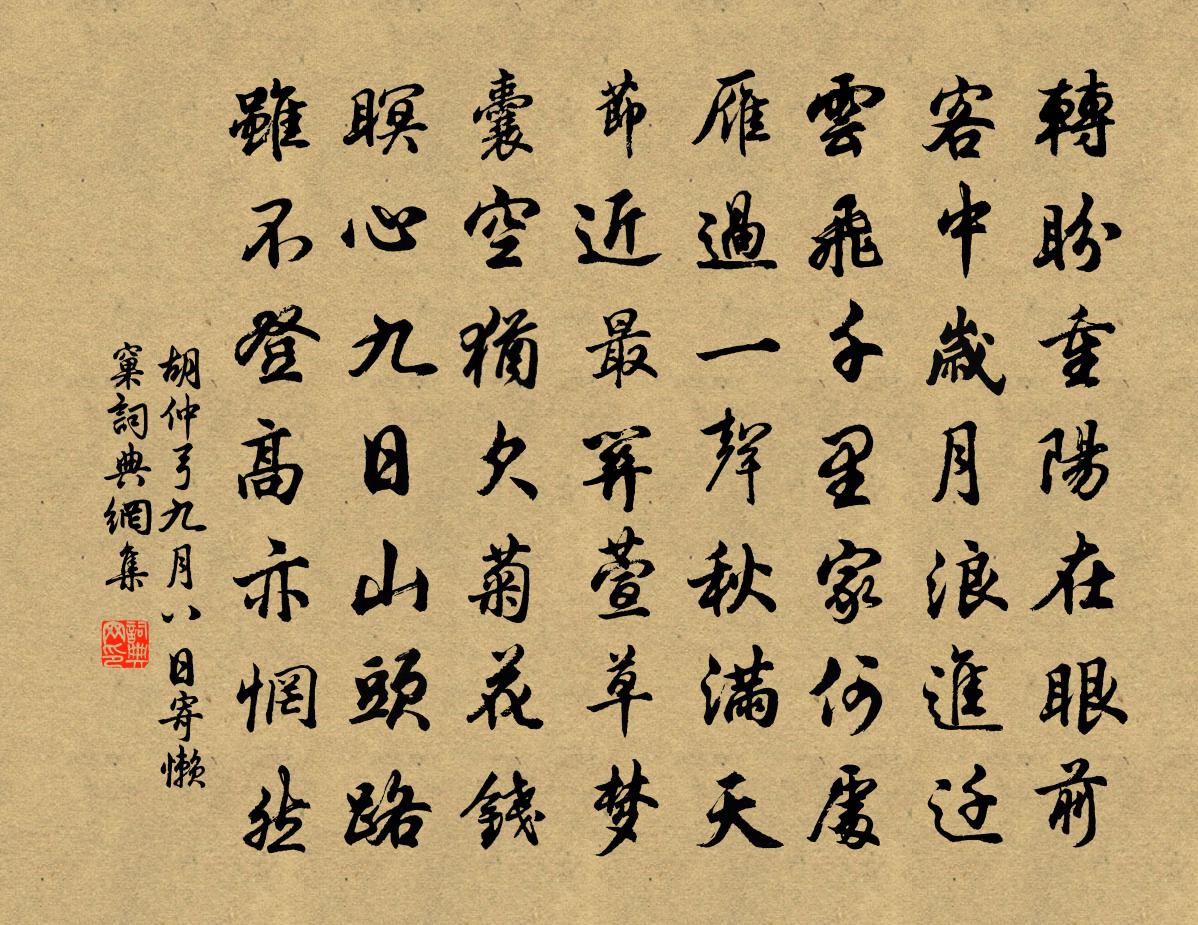 轉盼重陽在眼前
客中歲月浪進迁
雲飛千里家何處
雁過一聲秋滿天
節近最關萱草梦
囊空猶欠菊花錢
瞑心九日山頭路
雖不登高亦惘然
胡仲弓九月八日寄懶
窠詞典網集
詞典网印